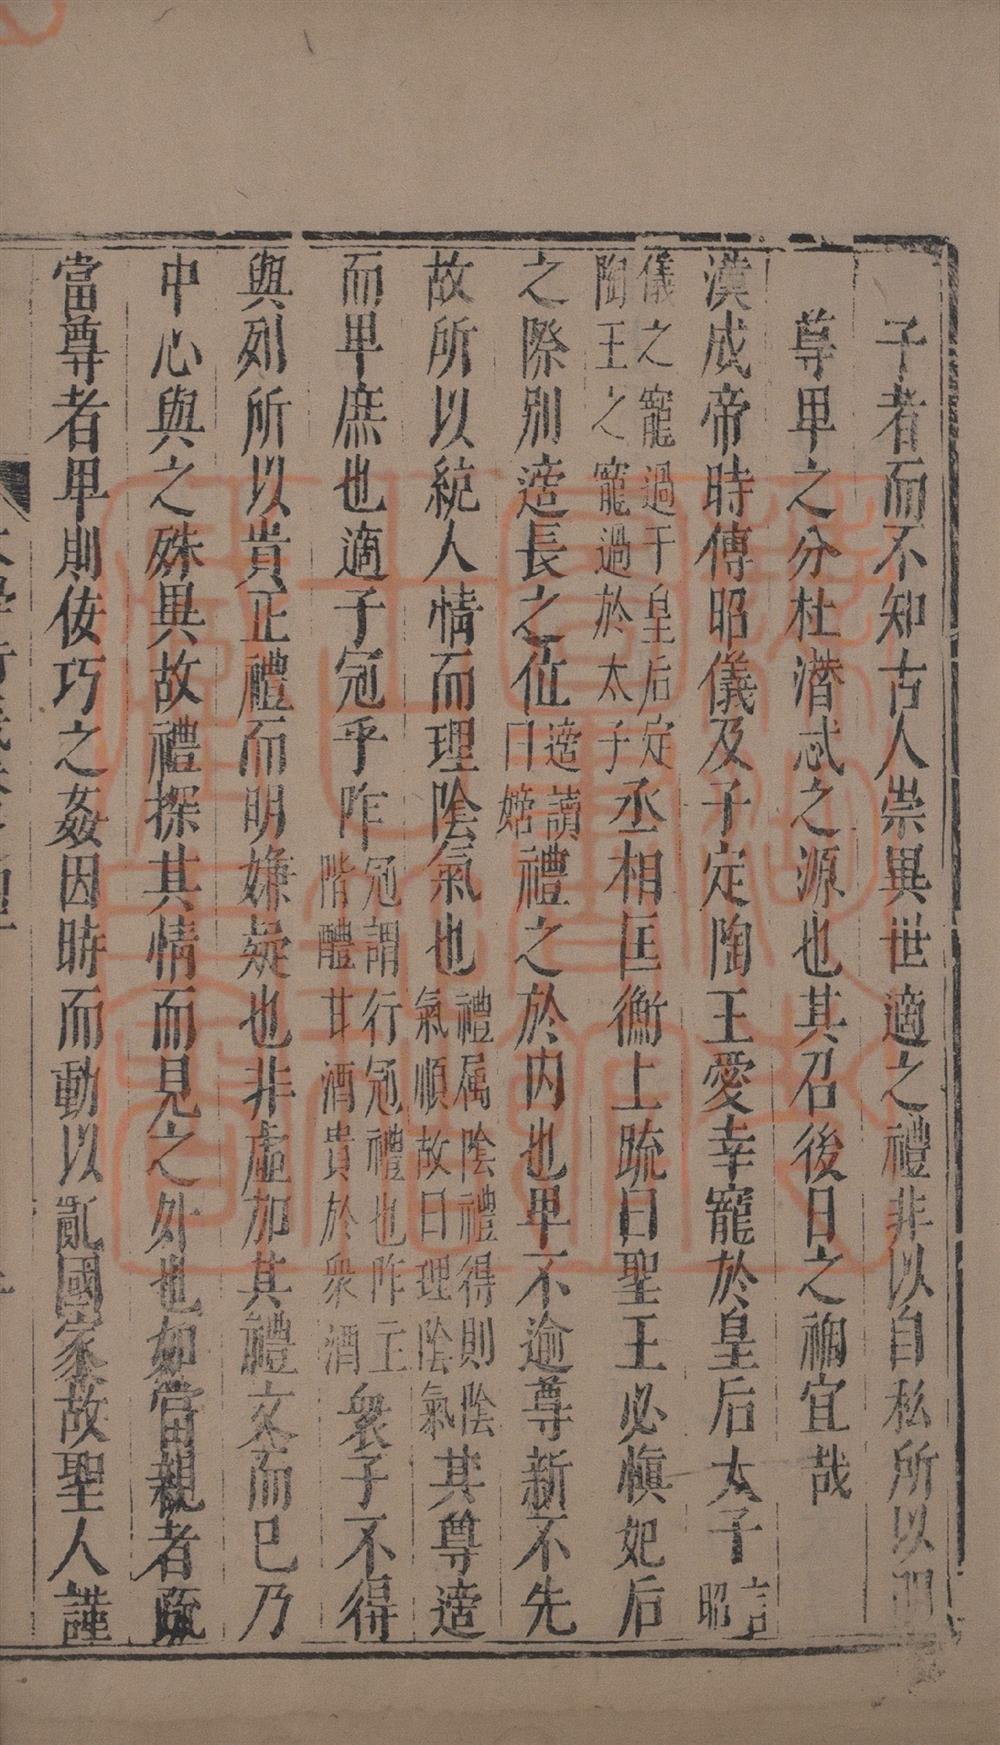 子者而不知古人崇異世適之禮非以自私所以明
尊卑之分杜潛忒之源也其召後日之禍宜哉
漢成帝時傅昭儀及子定陶王愛幸寵於皇后太子言昭
儀之寵過于皇后定陶王之寵過於太子丞相匡衡上疏曰聖王必慎妃后
之際別適長之位適讀曰嫡禮之於内也卑不逾尊新不先
故所以統人情而理陰氣也禮属陰禮得則陰氣順故曰理陰氣其尊適
而卑庶也適子冠乎阼冠謂行冠禮也阼主階醴甘酒貴於衆酒衆子不得
與列所以貴正禮而明嫌疑也非虛加其禮文而已乃
中心與之殊異故禮探其情而見之外也如當親者疏
當尊者卑則佞巧之姦因時而動以亂國家故聖人謹